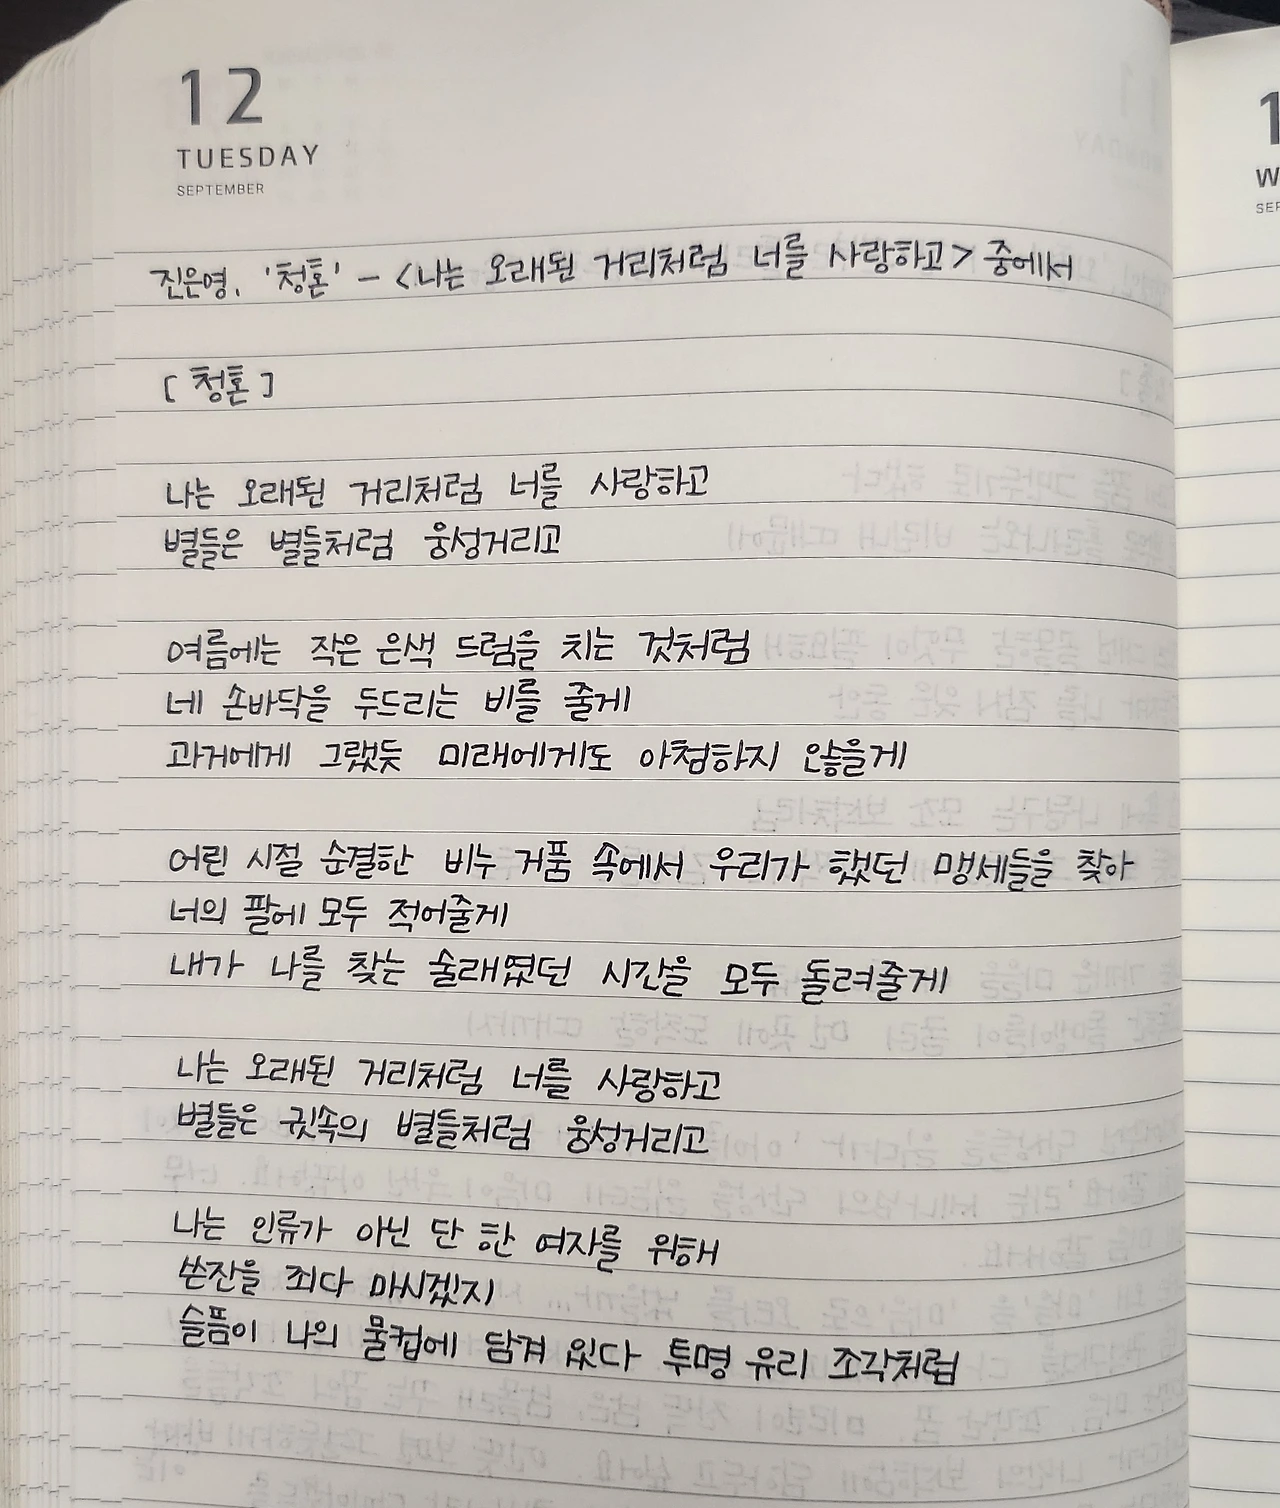 12
TUESDAY
SEPTEMBER
진은영, '청혼' - <나는 오래된 거리처럼 너를 사랑하고> 중에서
[청혼]
나는 오래된 거리처럼 너를 사랑하고
별들은 별들처럼 웅성거리고
여름에는 작은 은색 드럼을 치는 것처럼
네 손바닥을 두드리는 비를 줄게
과거에게 그랬듯 미래에게도 아첨하지 않을게
어린 시절 순결한 비누 거품 속에서 우리가 했던 맹세들을 찾아
너의 팔에 모두 적어줄게
내가 나를 찾는 술래였던 시간을 모두 돌려줄게
나는 오래된 거리처럼 너를 사랑하고
별들은 귓속의 별들처럼 웅성거리고
나는 인류가 아닌 단 한 여자를 위해
쓴잔을 죄다 마시겠지
슬픔이 나의 물컵에 담겨 있다 투명 유리 조각처럼